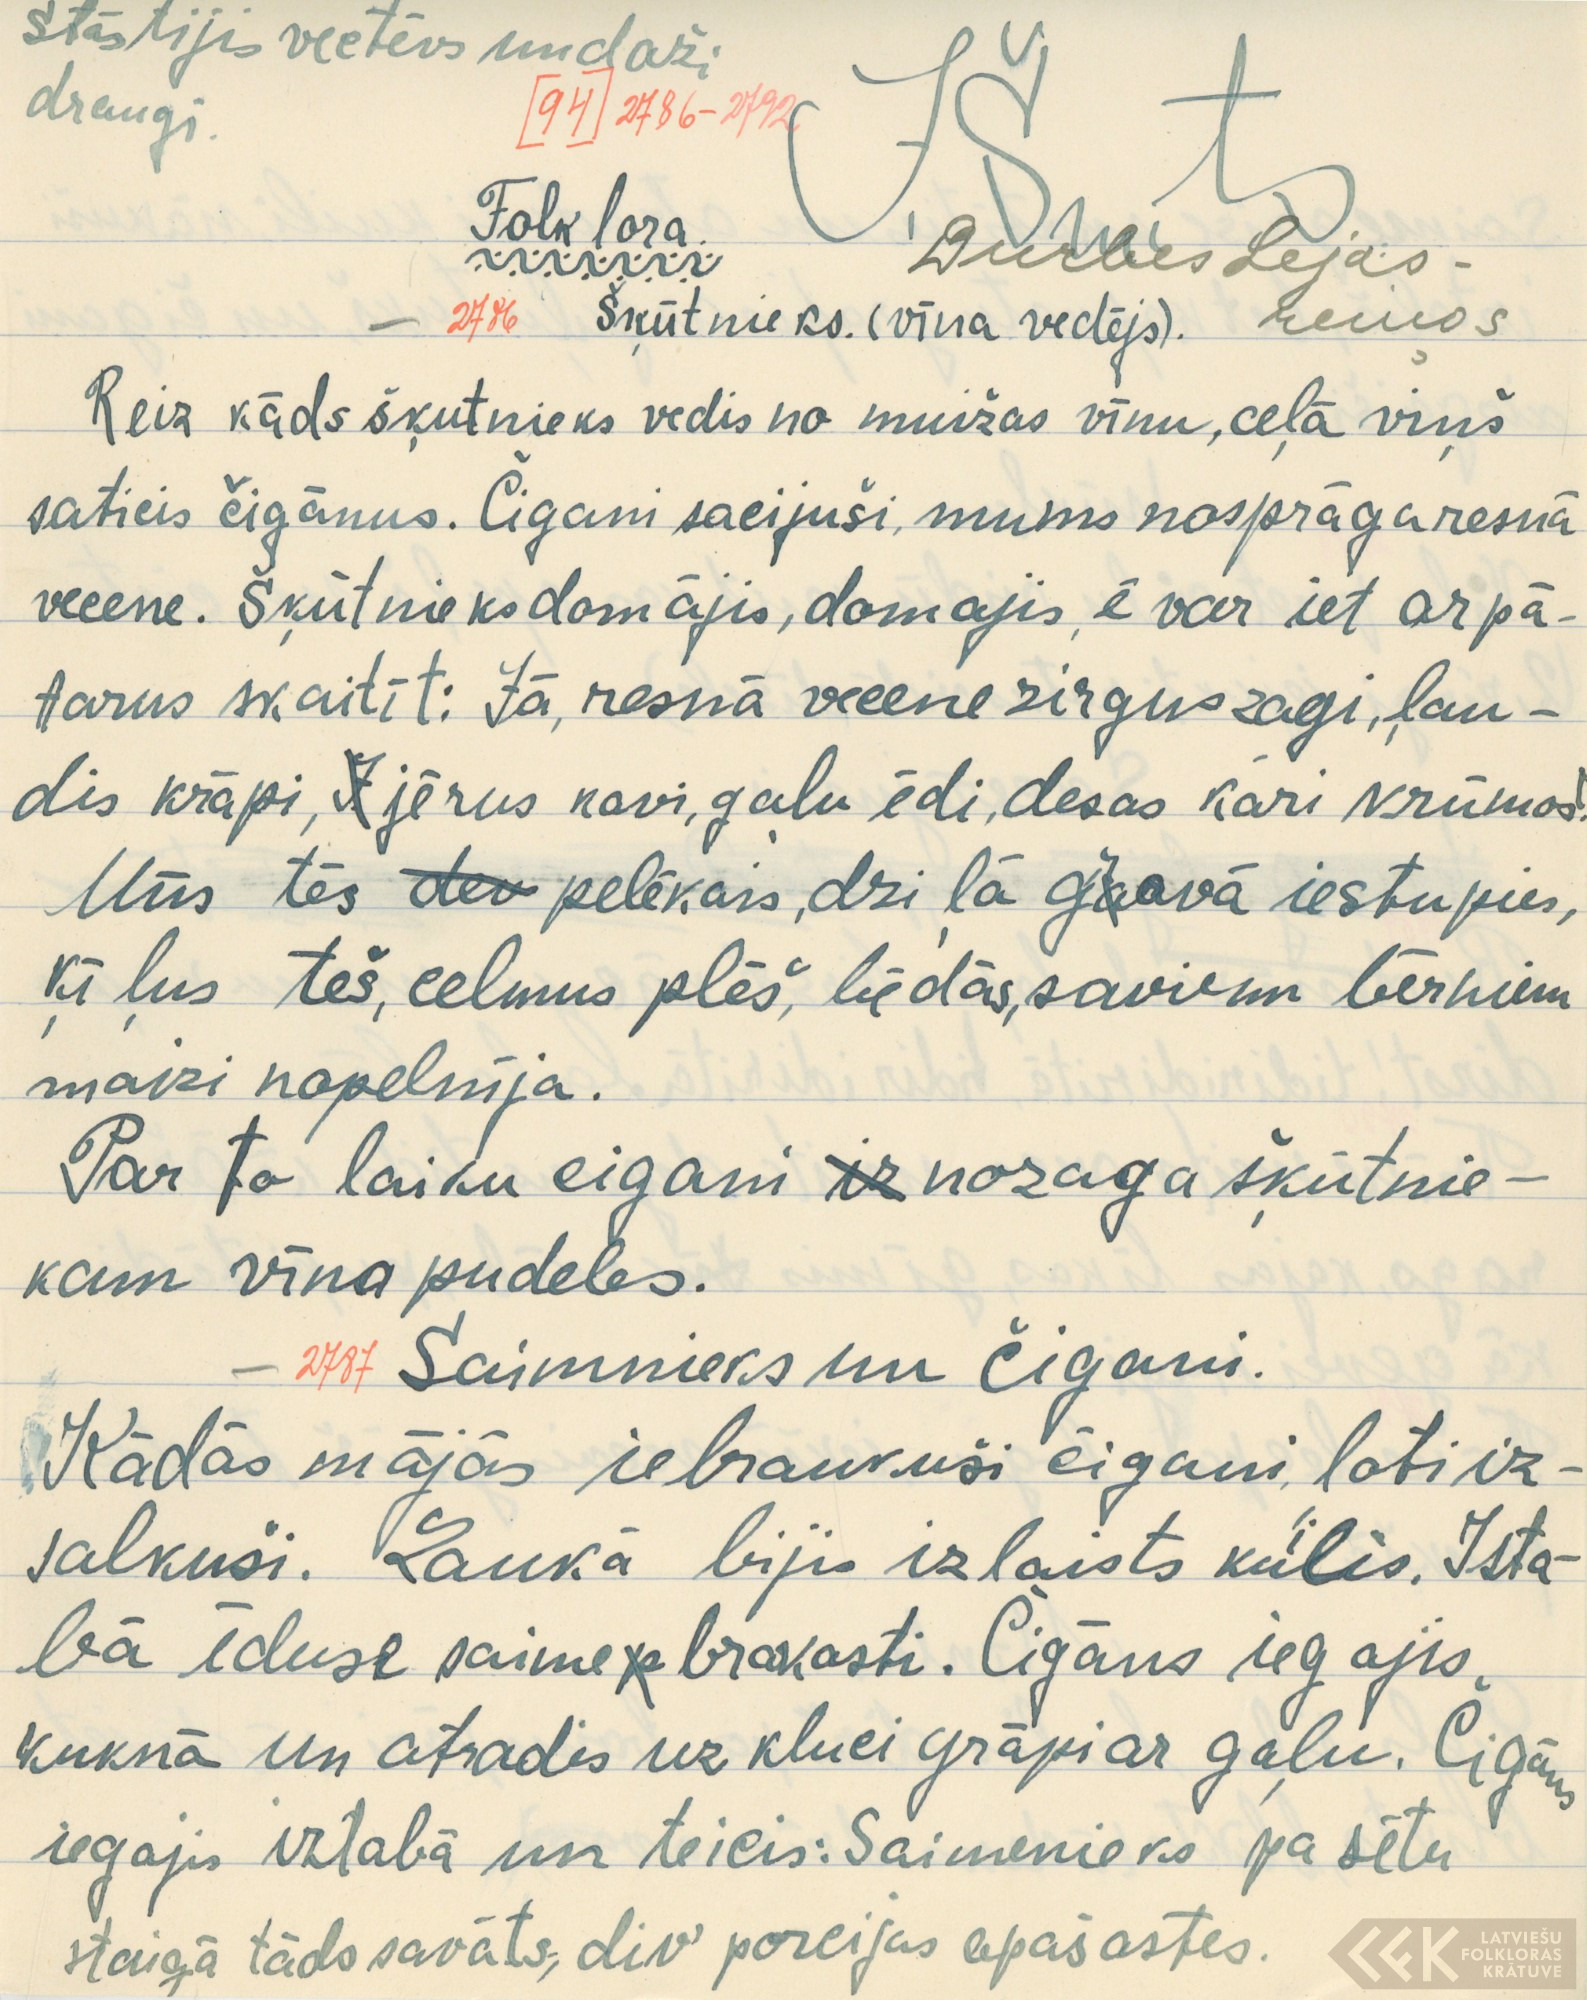 Stāstijis vectēvs un daži
draugi.
[94] 2786-2792
Folklora.
Durbes Lejas-
2786 Šķūtnieks. (vīna vedējs).
Reiz kāds šķutnieks vedis no muižas vīnu, ceļā viņš
saticis čigānus. Čigani sacijuši, mums nosprāga resnā
vecene. Šķūtnieks domājis, domajis, ē var iet ar pā-
tarus skaitīt: Jā, resnā vecene zirgus zagi, ļau-
dis krāpi, jērus kavi, gaļu ēdi, desas kāri krūmos!
Mūs tēs dev pelēkais, dziļā gravā iestupies,
ķīļus teš, celmus plēš, bēdās, saviem bērniem
maizi nopelnīja.
Par to laiku cigani iz nozaga šķūtnie-
kam vīna pudeles.
2787 Saimnieks un čigani.
Kādās mājās iebraukuši čigani, loti iz-
salkuši. Laukā bijis izlaists kuilis. Ista-
bā ēduse saime brokasti. Čigāns iegajis
kuknā un atradis uz kluci grāpi ar gaļu. Čigāns
iegajis iztabā un teicis: Saimenieks pa sētu
staigā tāds savāts, div' porcijas apašastes.
LATVIEŠU
FOLKLORAS
KRĀTUVE